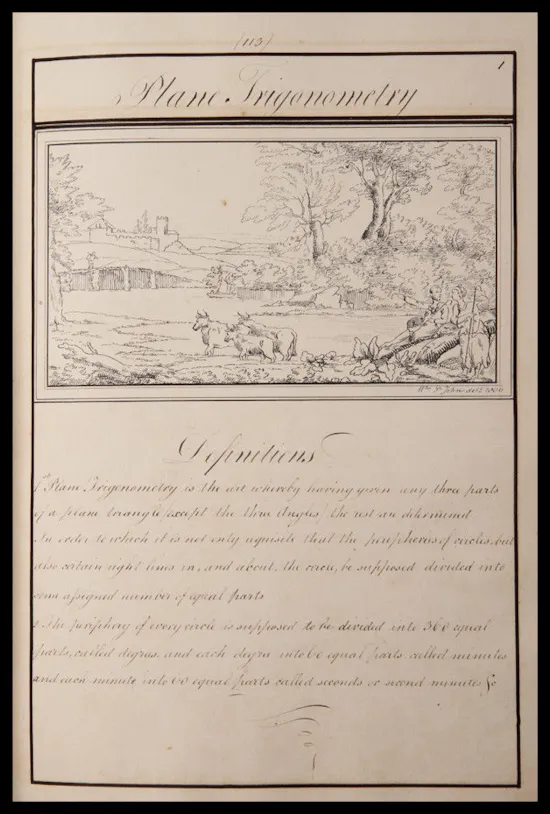 (113)
1
Plane Trigonometry
Definitions
1st Plane Trigonometry is the art whereby having given any three parts
of a plane triangle (except the three Angles) the rest are determined
In order to which it is not only requisite that the peripheries of circles, but
also certain right lines in, and about, the circle, be supposed divided into
some assigned number of equal parts
2 The periphery of every circle is supposed to be divided into 360 equal
parts, called degres, and each degre into 60 equal parts called minutes
and each minute into 60 equal parts called seconds or second minutes &c